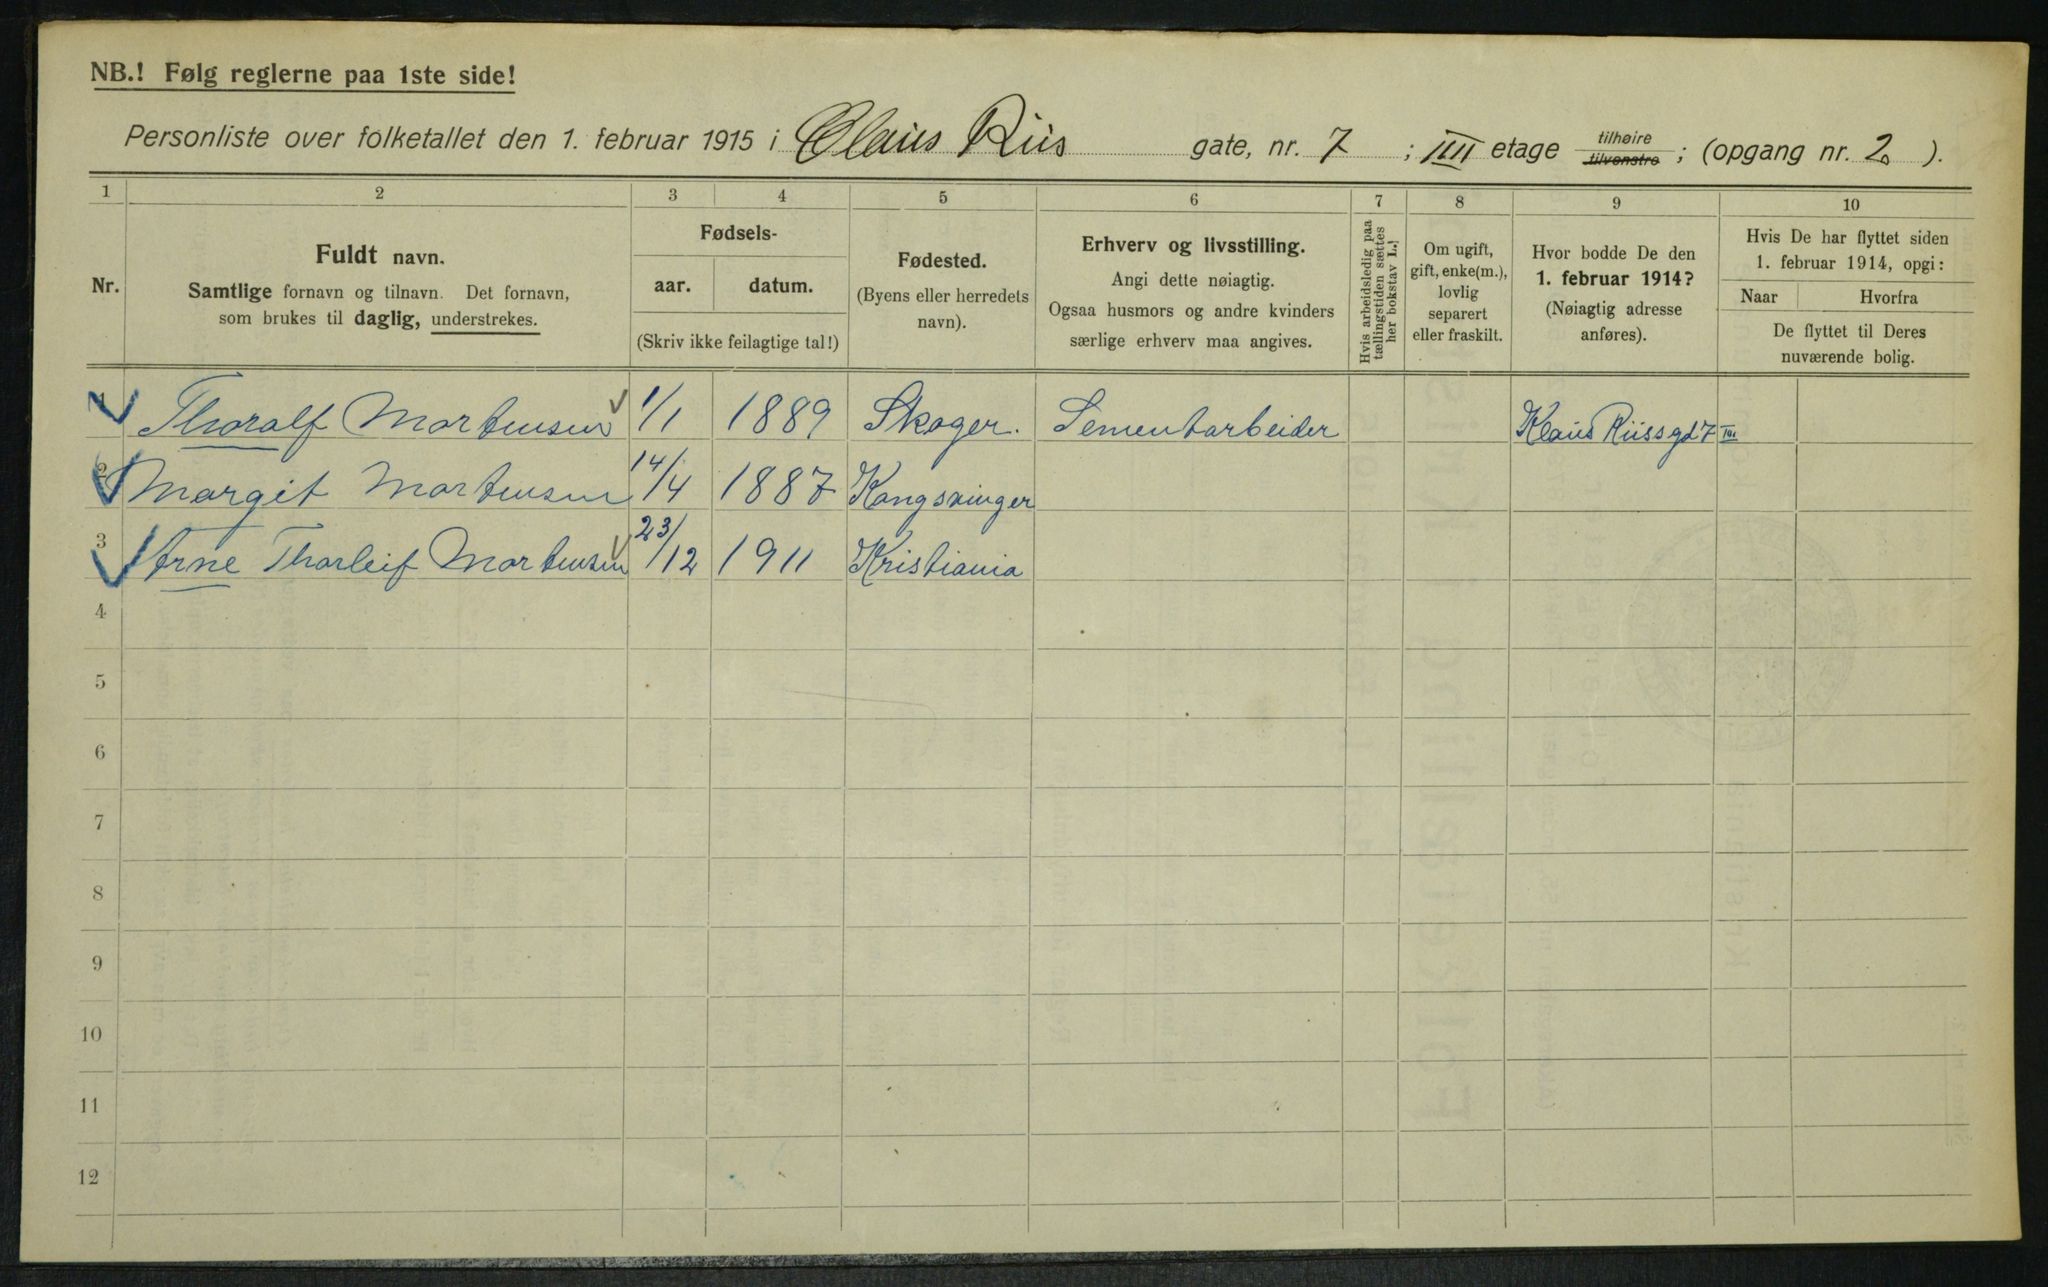 NB.! Følg reglerne paa 1ste side!
Personliste over folketallet den 1. februar 1915 i Claus Riis gate, nr. 7 ; IIII etage tilhøire tilvenstre ; (opgang nr. 2 ).
1 2 3 4 5 6 7 8 9 10
Nr.
Fuldt navn.
Samtlige fornavn og tilnavn. Det fornavn,
som brukes til daglig, understrekes.
Fødsels-
aar. datum.
(Skriv ikke feilagtige tal!)
Fødested.
(Byens eller herredets
navn).
Erhverv og livsstilling.
Angi dette nøiagtig.
Ogsaa husmors og andre kvinders
særlige erhverv maa angives.
Hvis arbeidsledig paa
tællingstiden sættes
her bokstav L.!
Om ugift,
gift, enke(m.),
lovlig
separert
eller fraskilt.
Hvor bodde De den
1. februar 1914?
(Nøiagtig adresse
anføres).
Hvis De har flyttet siden
1. februar 1914, opgi:
Naar Hvorfra
De flyttet til Deres
nuværende bolig.
1 Thoralf Mortensen 1/1 1889 Skoger. Sementarbeider Klaus Riissgd 7 III
2 Margit Mortensen 14/4 1887 Kongsvinger
3 Arne Thorleif Mortensen 23/12 1911 Kristiania
4
5
6
7
8
9
10
11
12